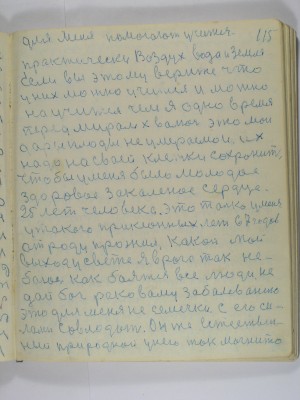 для меня помогают учится. 115
практически Воздух вода и земля
если вы этому верите что
у них можно учится и можно
научится чем я одно время
перед миром хвалюсь это мои
дары плоды не умираемой, их
надо на своей клетки сохранить,
чтобы у меня было молодое
здоровое закаленое сердце.
25 лет человека. Это только у меня
у такого приклонных лет 67 годов
от роду прожил, какой мой
выход у свете я врого так не
боюс как боятся все люди, не
дай бог раковому заболеванию
это для меня не семечки. С его си-
лами совлодат. Он же естествен-
ный природной у него ток магнито